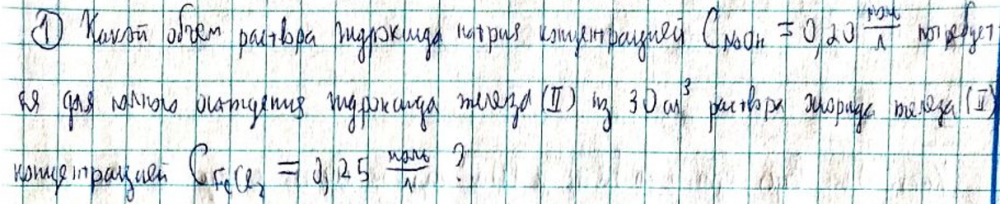 ① Какой объем раствора гидроксида натрия концентрацией C_NaOH = 0,20 моль/л потребует
ся для полного осаждения гидроксида железа (II) из 30 см³ раствора хлорида железа (II)
концентрацией C_FeCl₂ = 0,25 моль/л ?